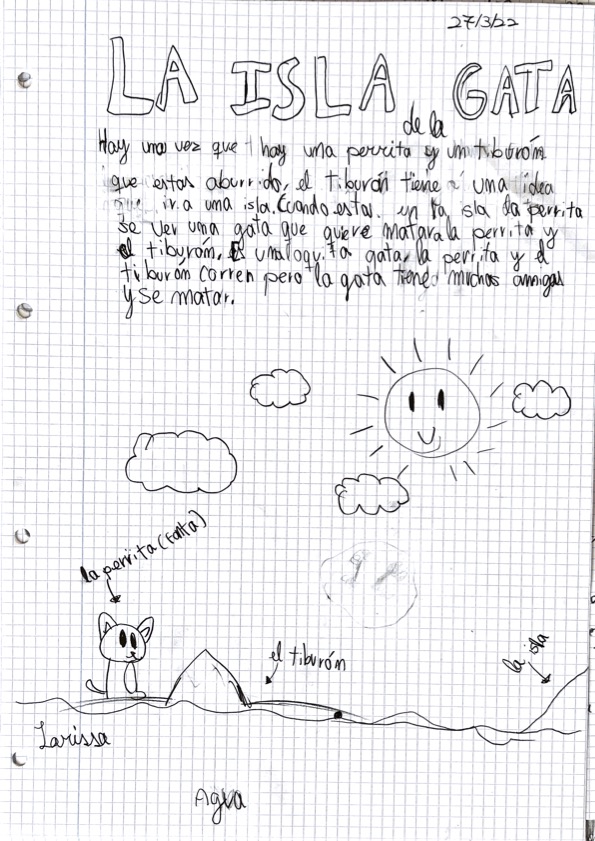 27/3/22
LA ISLA de la GATA
Hay una vez que hay una perrita y un tiburón
que estas aburrido, el tiburón tiene una idea
que ir a una isla. Cuando estas en la isla la perrita
se ver una gata que quiere matar a la perrita y
el tiburón. Es una loquita gata, la perrita y el
tiburón corren pero la gata tiene muchas amigas
y se matar.
la perrita (tonta)
el tiburón
la isla
Larissa
Agua